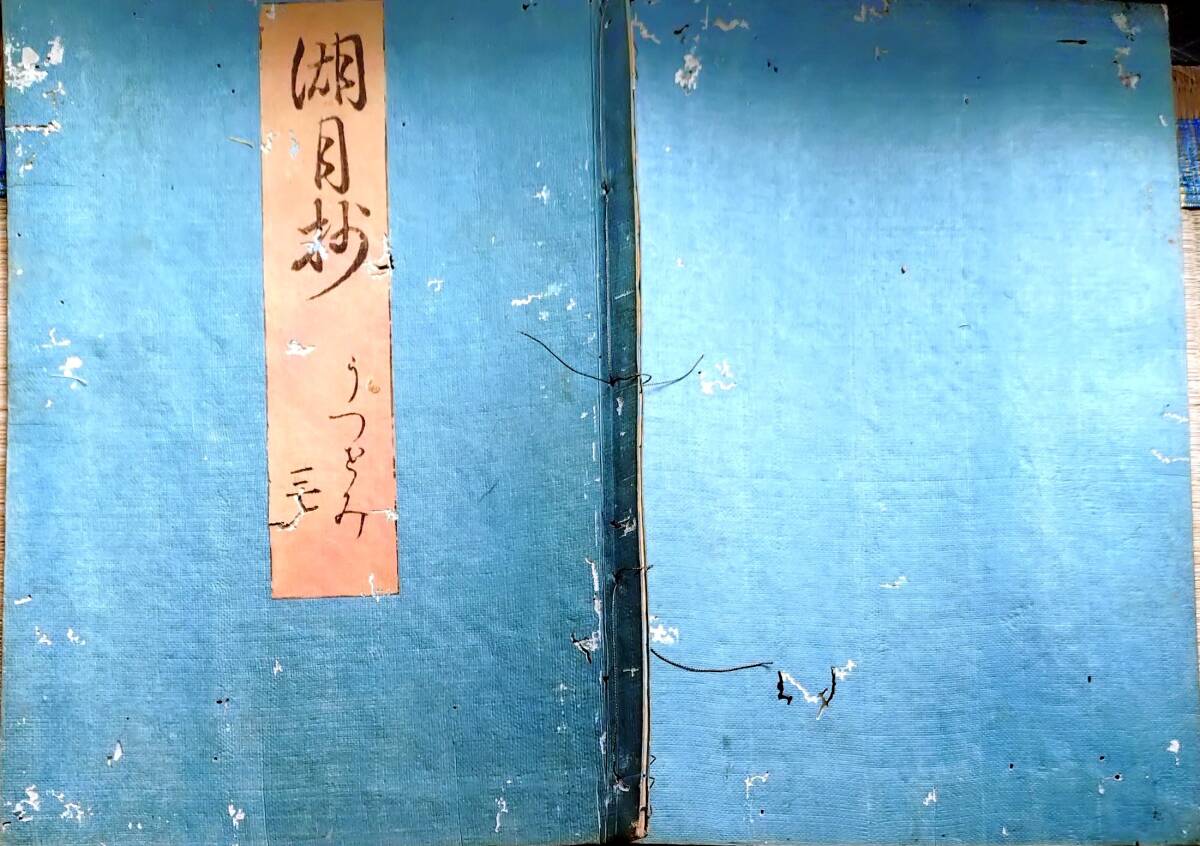 湖月抄
うつせみ
三